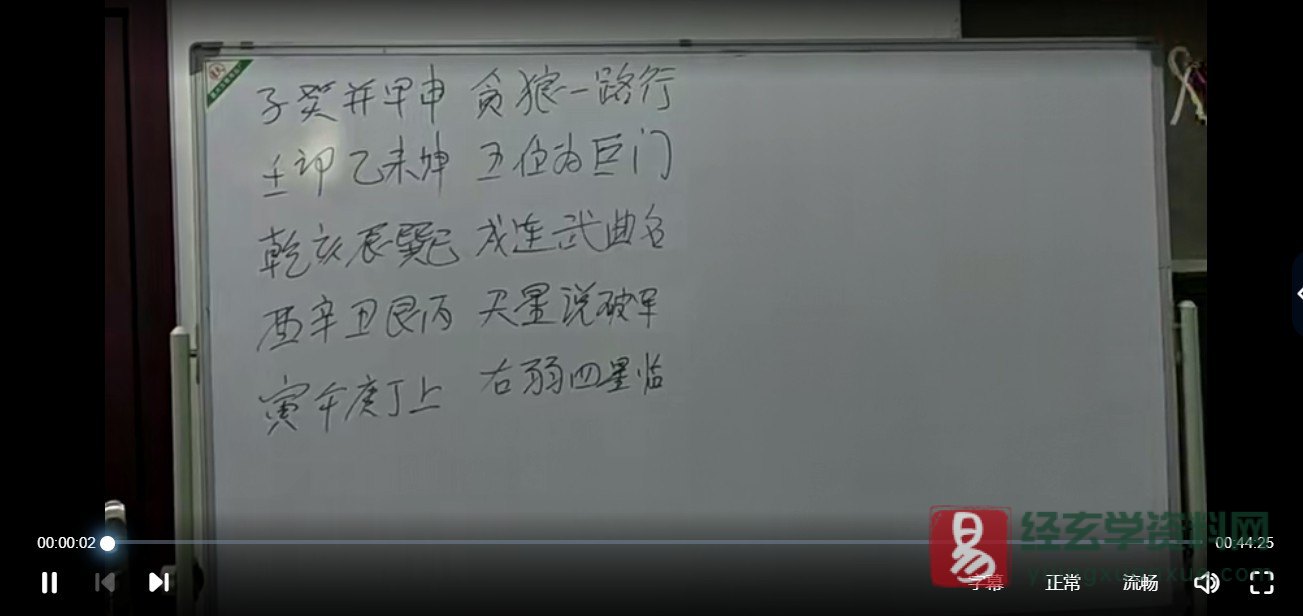 子癸并甲申 贪狼一路行
壬卯乙未坤 五位为巨门
乾亥辰巽巳 戌连武曲名
酉辛丑艮丙 天星说破军
寅午庚丁上 右弼四星临
易
经玄学资料网
00:00:02
00:44:25
字幕
正常
流畅